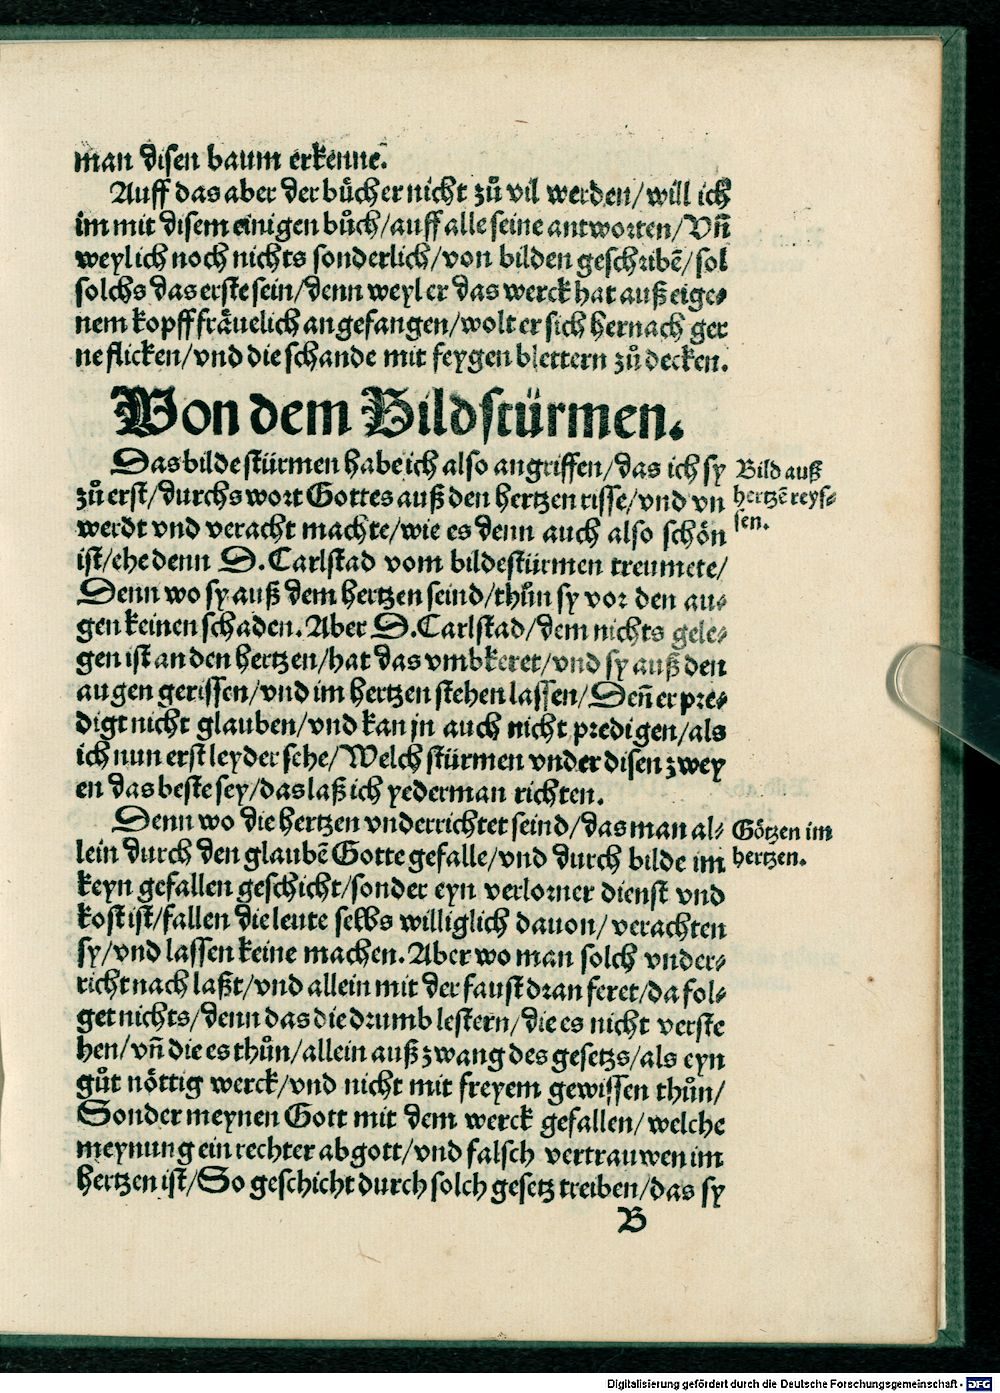 man disen baum erkenne.
Auff das aber der bücher nicht zů vil werden/ will ich
im mit disem einigen bůch/ auff alle seine antworten/ Vñ
weyl ich noch nichts sonderlich/ von bilden geschribẽ/ sol
solchs das erste sein/ denn weyl er das werck hat auß eige⸗
nem kopff fräuelich angefangen/ wolt er sich hernach ger
ne flicken/ vnd die schande mit feygen blettern zů decken.
Von dem Bildstürmen.
Das bilde stürmen habe ich also angriffen/ das ich sy
zů erst/ durchs wort Gottes auß den hertzen risse/ vnd vn
werdt vnd veracht machte/ wie es denn auch also schön
ist/ ehe denn D. Carlstad vom bildestürmen treumete/
Denn wo sy auß dem hertzen seind/ thůn sy vor den au⸗
gen keinen schaden. Aber D. Carlstad/ dem nichts gele⸗
gen ist an den hertzen/ hat das vmbkeret/ vnd sy auß den
augen gerissen/ vnd im hertzen stehen lassen/ Deñ er pre⸗
digt nicht glauben/ vnd kan jn auch nicht predigen/ als
ich nun erst leyder sehe/ Welch stürmen vnder disen zwey
en das beste sey/ das laß ich yederman richten.
Bild auß
hertzẽ reys⸗
sen.
Denn wo die hertzen vnderrichtet seind/ das man al⸗
lein durch den glaubẽ Gotte gefalle/ vnd durch bilde im
keyn gefallen geschicht/ sonder eyn verlorner dienst vnd
kost ist/ fallen die leute selbs williglich dauon/ verachten
sy/ vnd lassen keine machen. Aber wo man solch vnder⸗
richt nach laßt/ vnd allein mit der faust dran feret/ da fol⸗
get nichts/ denn das die drumb lestern/ die es nicht verste
hen/ vñ die es thůn/ allein auß zwang des gesetzs/ als eyn
gůt nöttig werck/ vnd nicht mit freyem gewissen thůn/
Sonder meynen Gott mit dem werck gefallen/ welche
meynung ein rechter abgott/ vnd falsch vertrauwen im
hertzen ist/ So geschicht durch solch gesetz treiben/ das sy
Götzen im
hertzen.
B
Digitalisierung gefördert durch die Deutsche Forschungsgemeinschaft - DFG